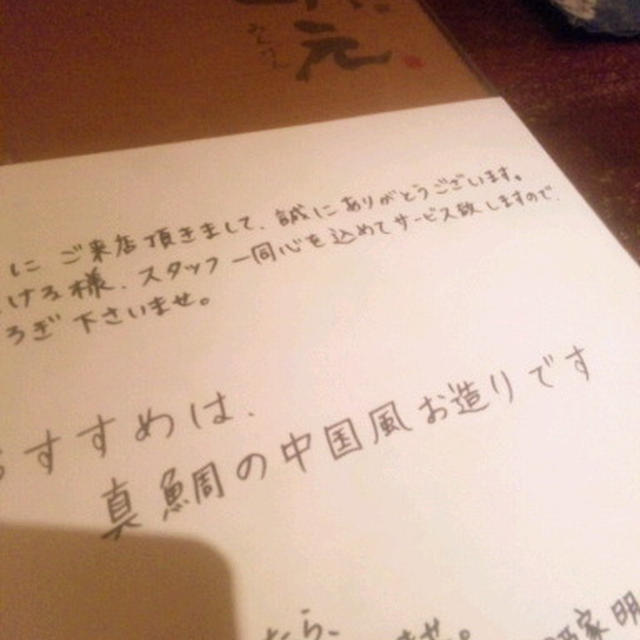 元
にご来店頂きまして、誠にありがとうございます。
ける様、スタッフ一同心を込めてサービス致しますので、
ろぎ下さいませ。
すすめは、
真鯛の中国風お造りです
たら、 ませ。 家 明